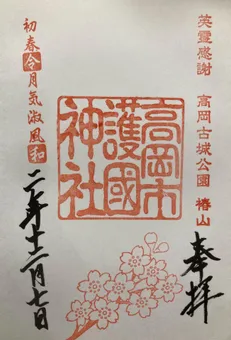 英霊感謝 高岡古城公園 椿山
奉拝
高岡市
護國
神社
初春令月気淑風和
二年十二月七日